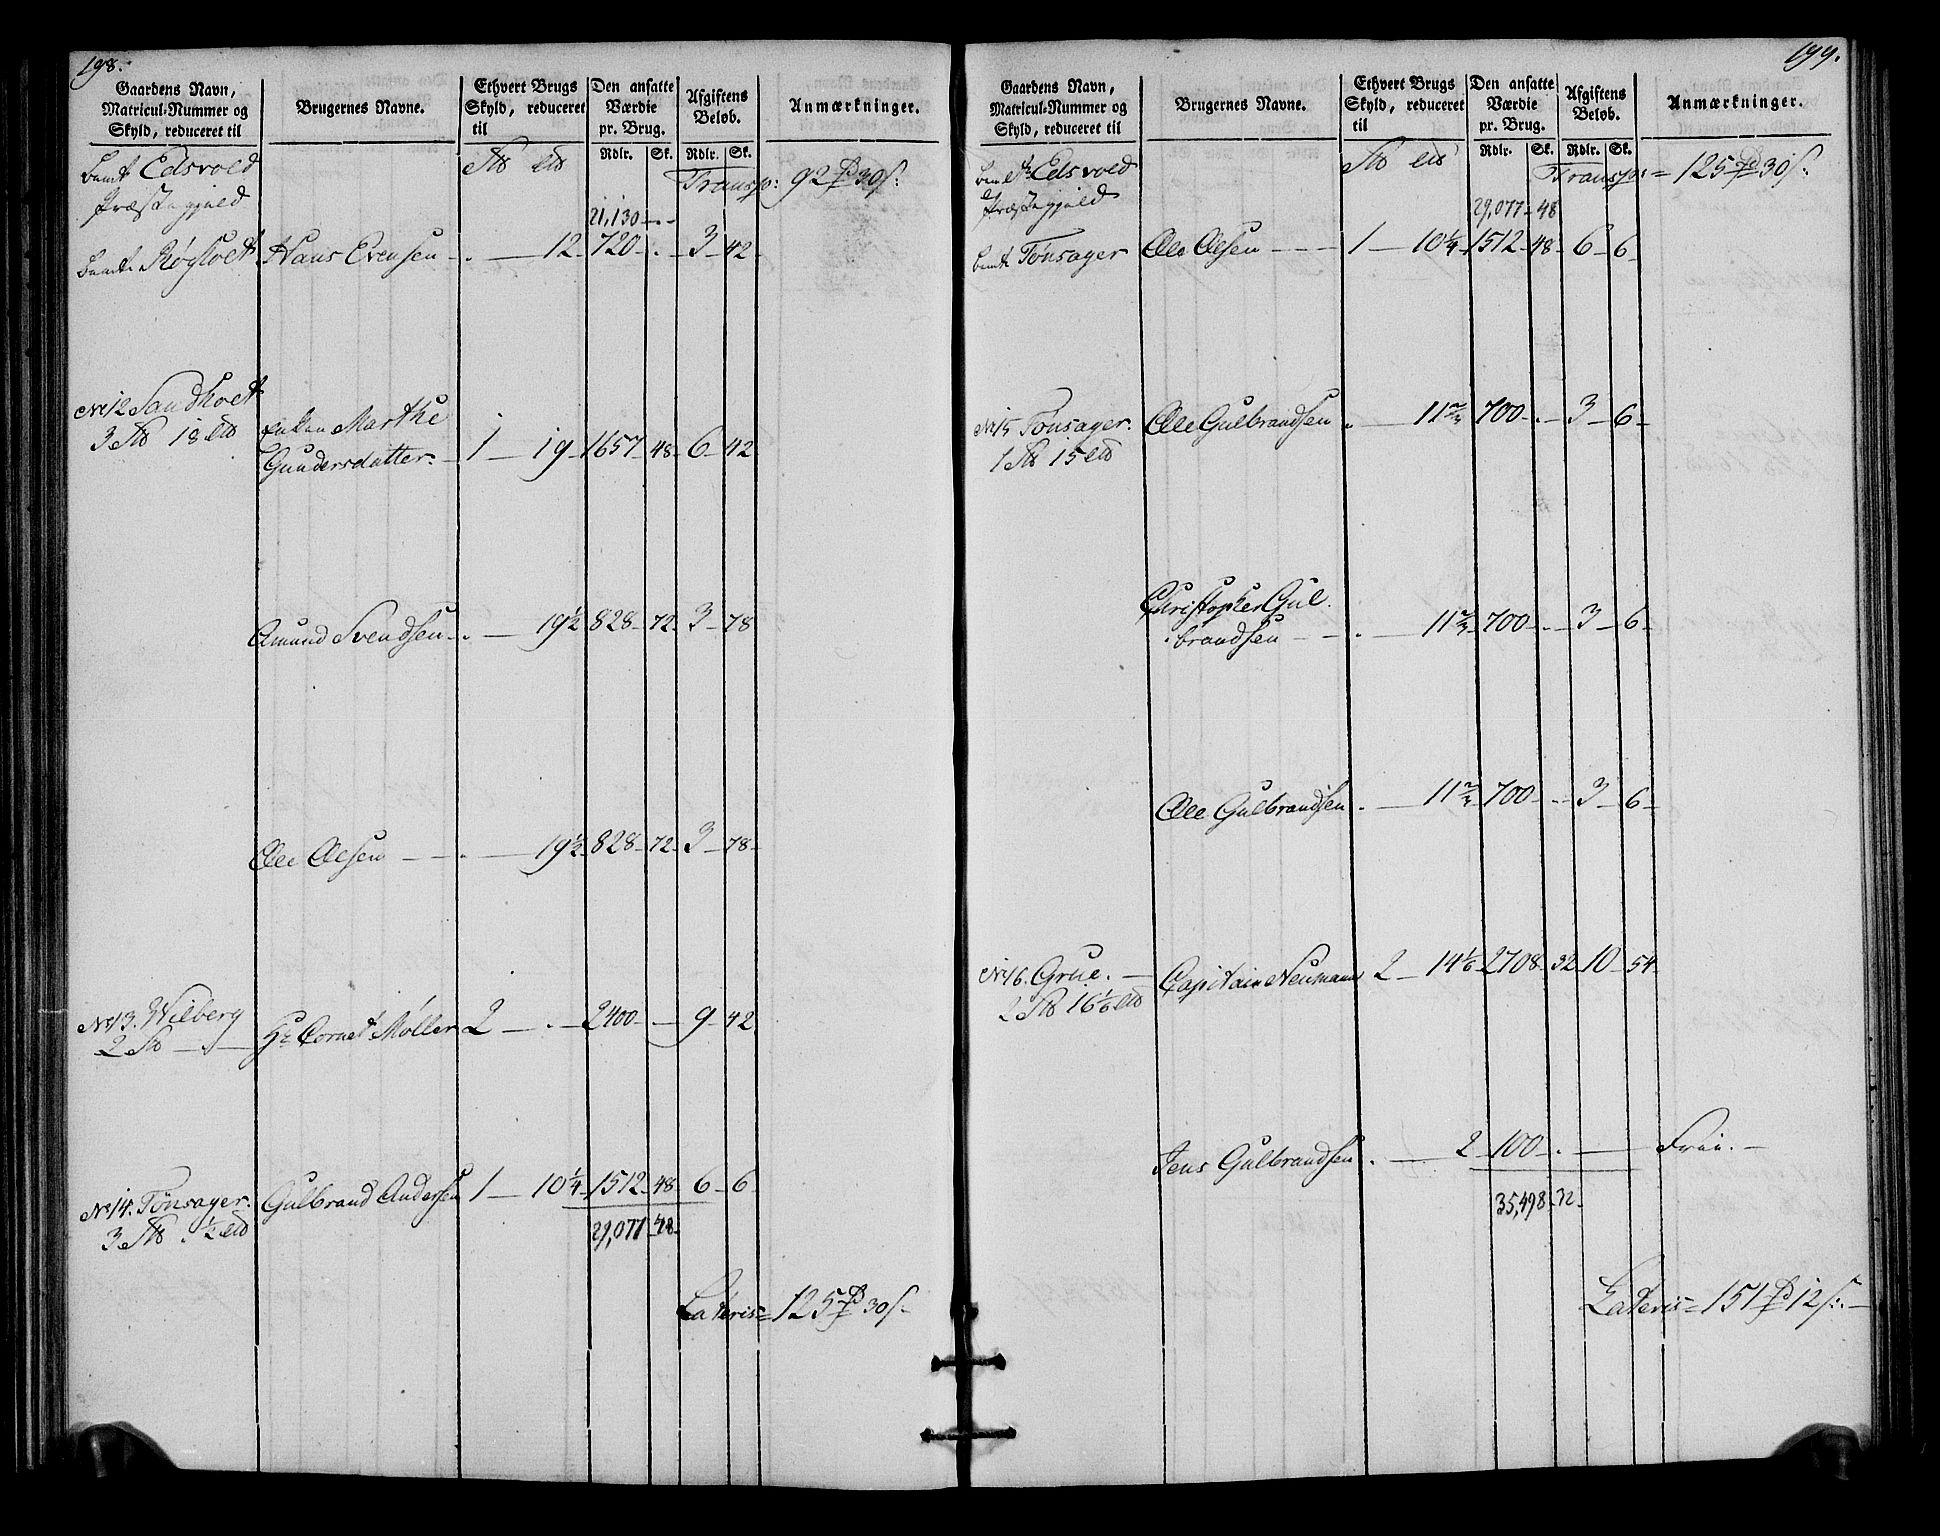 198.
Gaardens Navn,
Matricul-Nummer og
Skyld, reduceret til
Brugernes Navne.
Ethvert Brugs
Skyld, reduceret
til
Den ansatte
Værdie
pr. Brug.
Afgiftens
Beløb.
Anmærkninger.
Rdlr. Sk. Rdlr. Sk.
Edsvold
Præstegjeld
Transp: 92 30
21,130 - . -
Hans Evensen - . - 12 - 720 - . - 3 - 42
No 12 Sandholt
3 18
Enken Marthe
Gundersdatter. - 1 - 19 - 1657 - 48 - 6 - 42
Amund Svendsen - . - 19½ 828 - 72 - 3 - 78
Ole Olsen - . - 19½ 828 - 72 - 3 - 78 -
No 13. Wilberg
2
Hr Cornet Møller 2 - . - 2400 - . - 9 - 42
No 14. Tønsager.
3 ½
Gulbrand Andersen 1 - 10¼ - 1512 - 48 - 6 - 6 -
29,077 - 48 -
Lateris = 125 30
199.
Gaardens Navn,
Matricul-Nummer og
Skyld, reduceret til
Brugernes Navne.
Ethvert Brugs
Skyld, reduceret
til
Den ansatte
Værdie
pr. Brug.
Afgiftens
Beløb.
Anmærkninger.
Rdlr. Sk. Rdlr. Sk.
Edsvold
Præstegjeld
Transp: = 125 30
29,077 - 48
Tønsager Ole Olsen - - - 1 - 10¼ - 1512 - 48 - 6 - 6 -
No 15 Tønsager.
1 15
Ole Gulbrandsen . - 11⅔ 700 - . - 3 - 6 -
Christopher Gul
brandsen - - . - 11⅔ 700 - . - 3 - 6 -
Ole Gulbrandsen . - 11⅔ 700 - . - 3 - 6 -
No 16. Grue. -
2 16⅙
Capitain Neumann 2 - 14⅙ 2708 - 32 - 10 - 54 -
Jens Gulbrandsen . - 2 - 100 - . - Frie. -
35,498 - 32 -
Lateris = 151 12